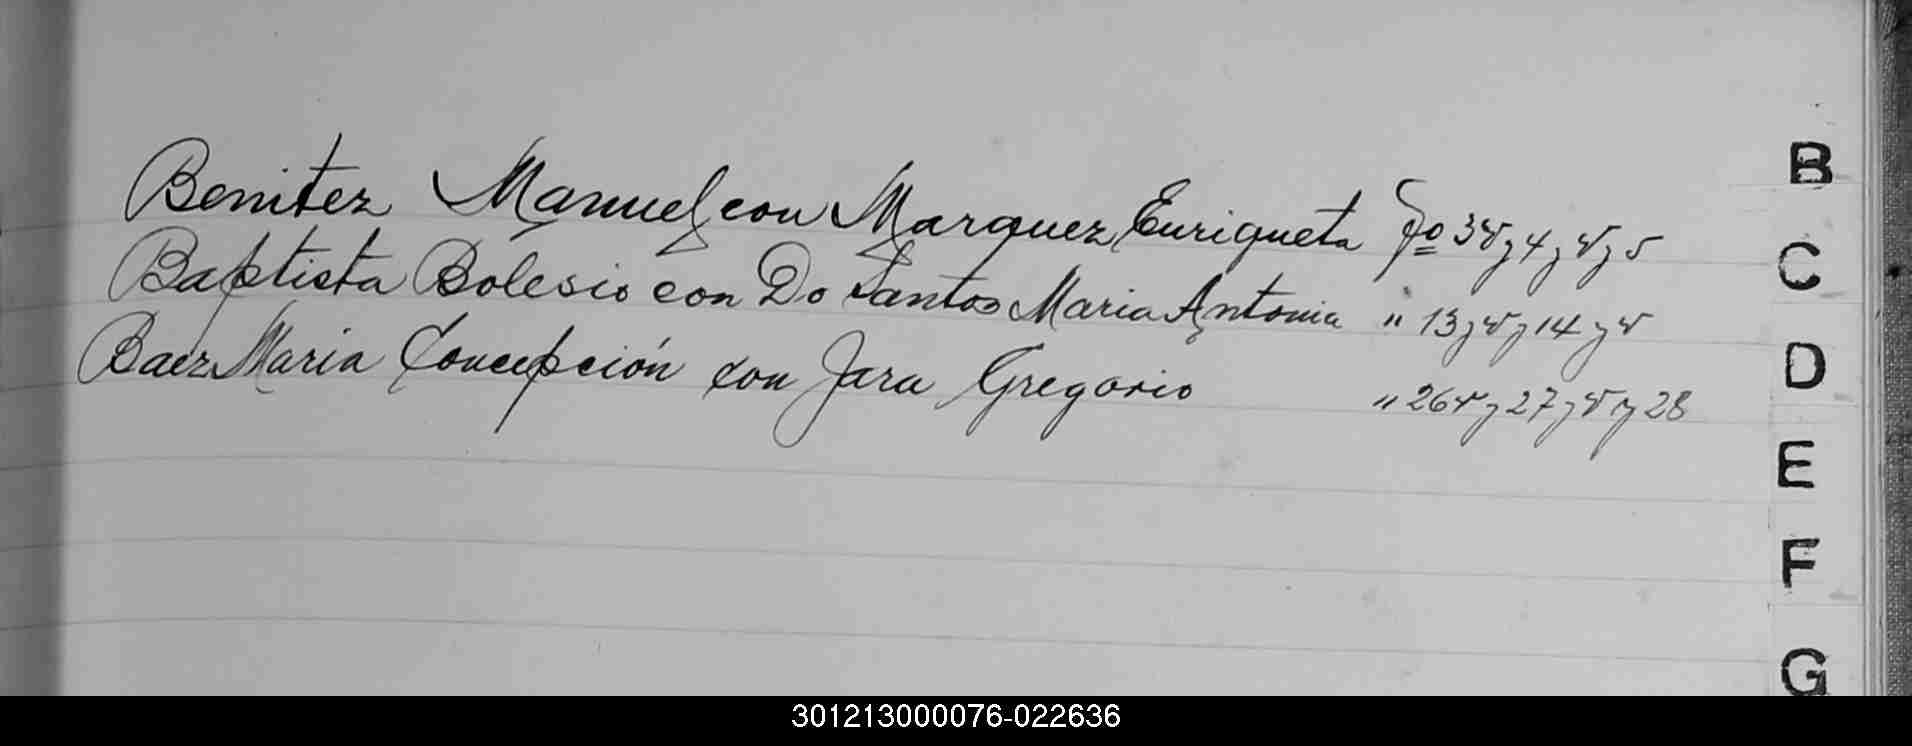 Benitez Manuel con Marquez Enriqueta fº 3v y 4 y v y 5
Baptista Bolesio con Do Santos Maria Antonia " 13 y v y 14 y v
Baez Maria Concepción con Jara Gregorio " 26v y 27 y v y 28
B
C
D
E
F
G
301213000076-022636